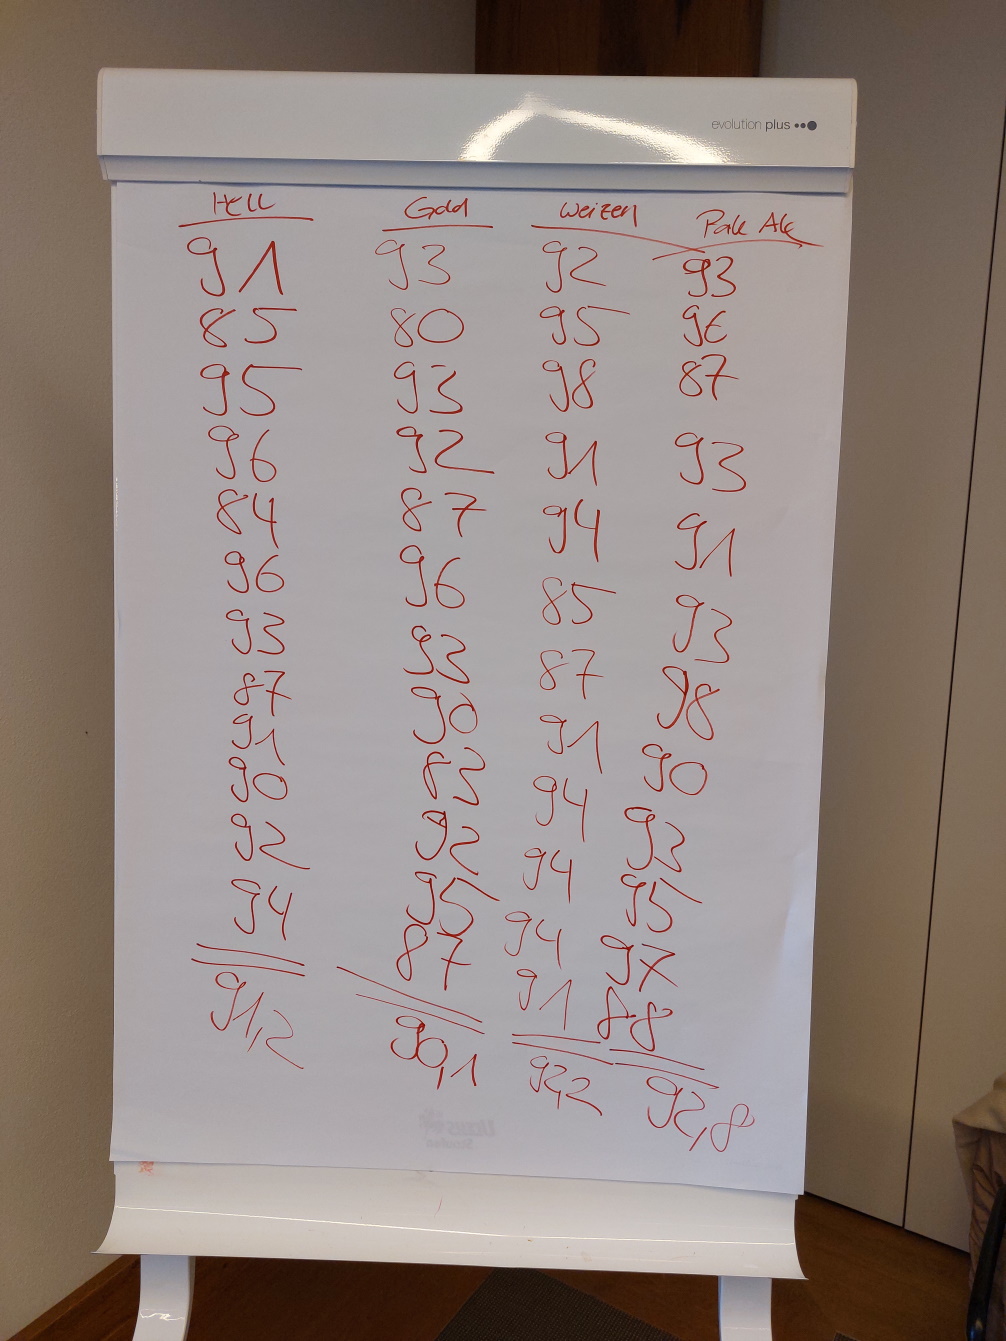 evolution plus
Hell Gold Weizen Pale Ale
91 93 92 93
85 80 95 96
95 93 98 87
96 92 91 93
84 87 94 91
96 96 85 93
93 93 87 98
87 90 91 90
91 83 94 93
90 92 94 95
92 95 94 97
94 87 91 88
91,2 90,1 92,2 92,8